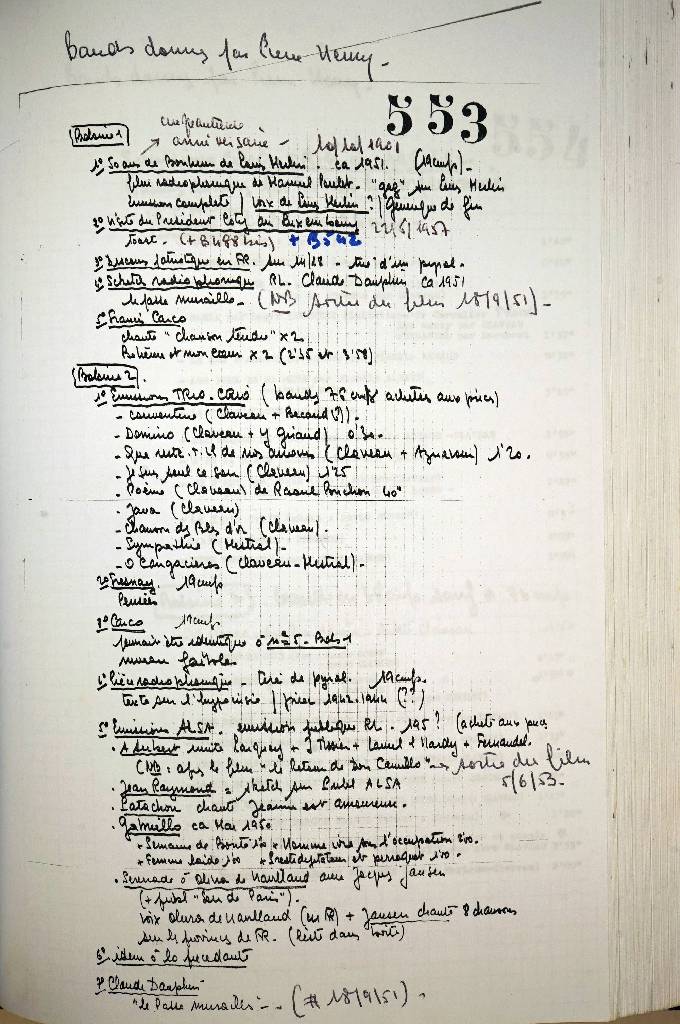 bands donnés par Pierre Henry -
553
Bobine 1
→ anniversaire - 10/10/1901
1° 50 ans de Bonheur de Louis Merlin. ca 1951. (19cm/s) -
film radiophonique de Manuel Poulet. "gag" sur Louis Merlin
Emission complète / Voix de Louis Merlin ? / Générique de fin
2° Visite du Président Coty au Luxembourg 22/6/1957
Toast. - (+ B 488 bis) + B542
3° Discours patriotique en FR. sur 14/18 - tiré d'un pyral.
4° Sketch radiophonique RL. Claude Dauphin ca 1951
le passe muraille - (NB sortie du film 18/9/51) -
5° Francis Carco
chante "chanson tendre" x 2
Bohème et mon cœur x 2 (2'35 et 3'58)
Bobine 2.
1° Emissions TRIO-CORIO (bands 76 cm/s achetés aux puces)
- (Claveau + Becaud (?)).
- Domino (Claveau + Y Giraud) 0'30.
- Que reste-t-il de nos amours (Claveau + Aznavour) 1'20.
- Je suis seul ce soir (Claveau) 1'25
- Poème (Claveau) de Raoul Ponchon 40"
- Java (Claveau)
- Chanson des Blés d'or (Claveau).
- Sympathie (Mestral) -
- O Cangaceiros (Claveau - Mestral) -
2° Fresnay. 19cm/s
Pensées
3° Carco 19cm/s
pourrait être identique à n° 5 - Bob-1
niveau faible
4° Pièce radiophonique - tiré de pyral. 19cm/s.
texte sur l'hypocrisie / prise 1942-1944 (??)
5° Emissions ALSA. émission publique RL. 195? (acheté aux puces
. A Aubert imite Larquey + J Tissier + Laurel & Hardy + Fernandel.
(NB : après le film "le retour de Don Camillo" → sortie du film
5/6/53 -
. Jean Raymond = sketch sur Publ ALSA
. Patachou chante Jeanne est amoureuse.
. Gabriello ca Mai 1950
+ Semaine de Bonté 1'00 + Homme vire sous l'occupation 2'00.
+ Femme laide 1'00 + Prestidigitateur et perroquet 1'20.
. Sérénade à Olivia de Havilland avec Jacques Jansen
(+ publ "Soir de Paris").
Voix Olivia de Havilland (en FR) + Jansen chante 8 chansons
sur les provinces de FR. (liste dans boîte)
6° idem à la précédente
7° Claude Dauphin
"le Passe muraille" - (# 18/9/51).